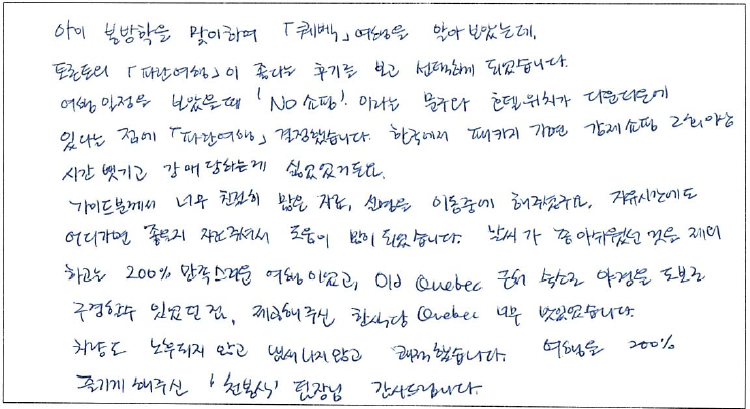 아이 봄방학을 맞이하여 「퀘벡」여행을 알아보았는데,
토론토의 「파란여행」이 좋다는 후기를 보고 선택하게 되었습니다.
여행일정을 보았을때 'NO쇼핑' 이라는 문구와 호텔위치가 다운타운에
있다는 점에 「파란여행」 결정했습니다. 한국에서 패키지 가면 강제쇼핑
시간 뺏기고 강매 당하는게 싫었었거든요.
가이드분께서 너무 친절히 많은 자료, 설명을 이동중에 해주셨구요, 자유시간에도
어디가면 좋을지 자문주셔서 도움이 많이 되었습니다. 날씨가 좀 아쉬웠던 것은 제외
하고는 200% 만족스러운 여행이었고, Old Quebec 근처 숙소로 야경을 도보로
구경할수 있었던 점, 제공해주신 한식당 Quebec 너무 맛있었습니다.
차량도 노후되지 않고 냄새나지않고 쾌적했습니다. 여행을 200%
즐기게 해주신 '천봉식' 팀장님 감사드립니다.